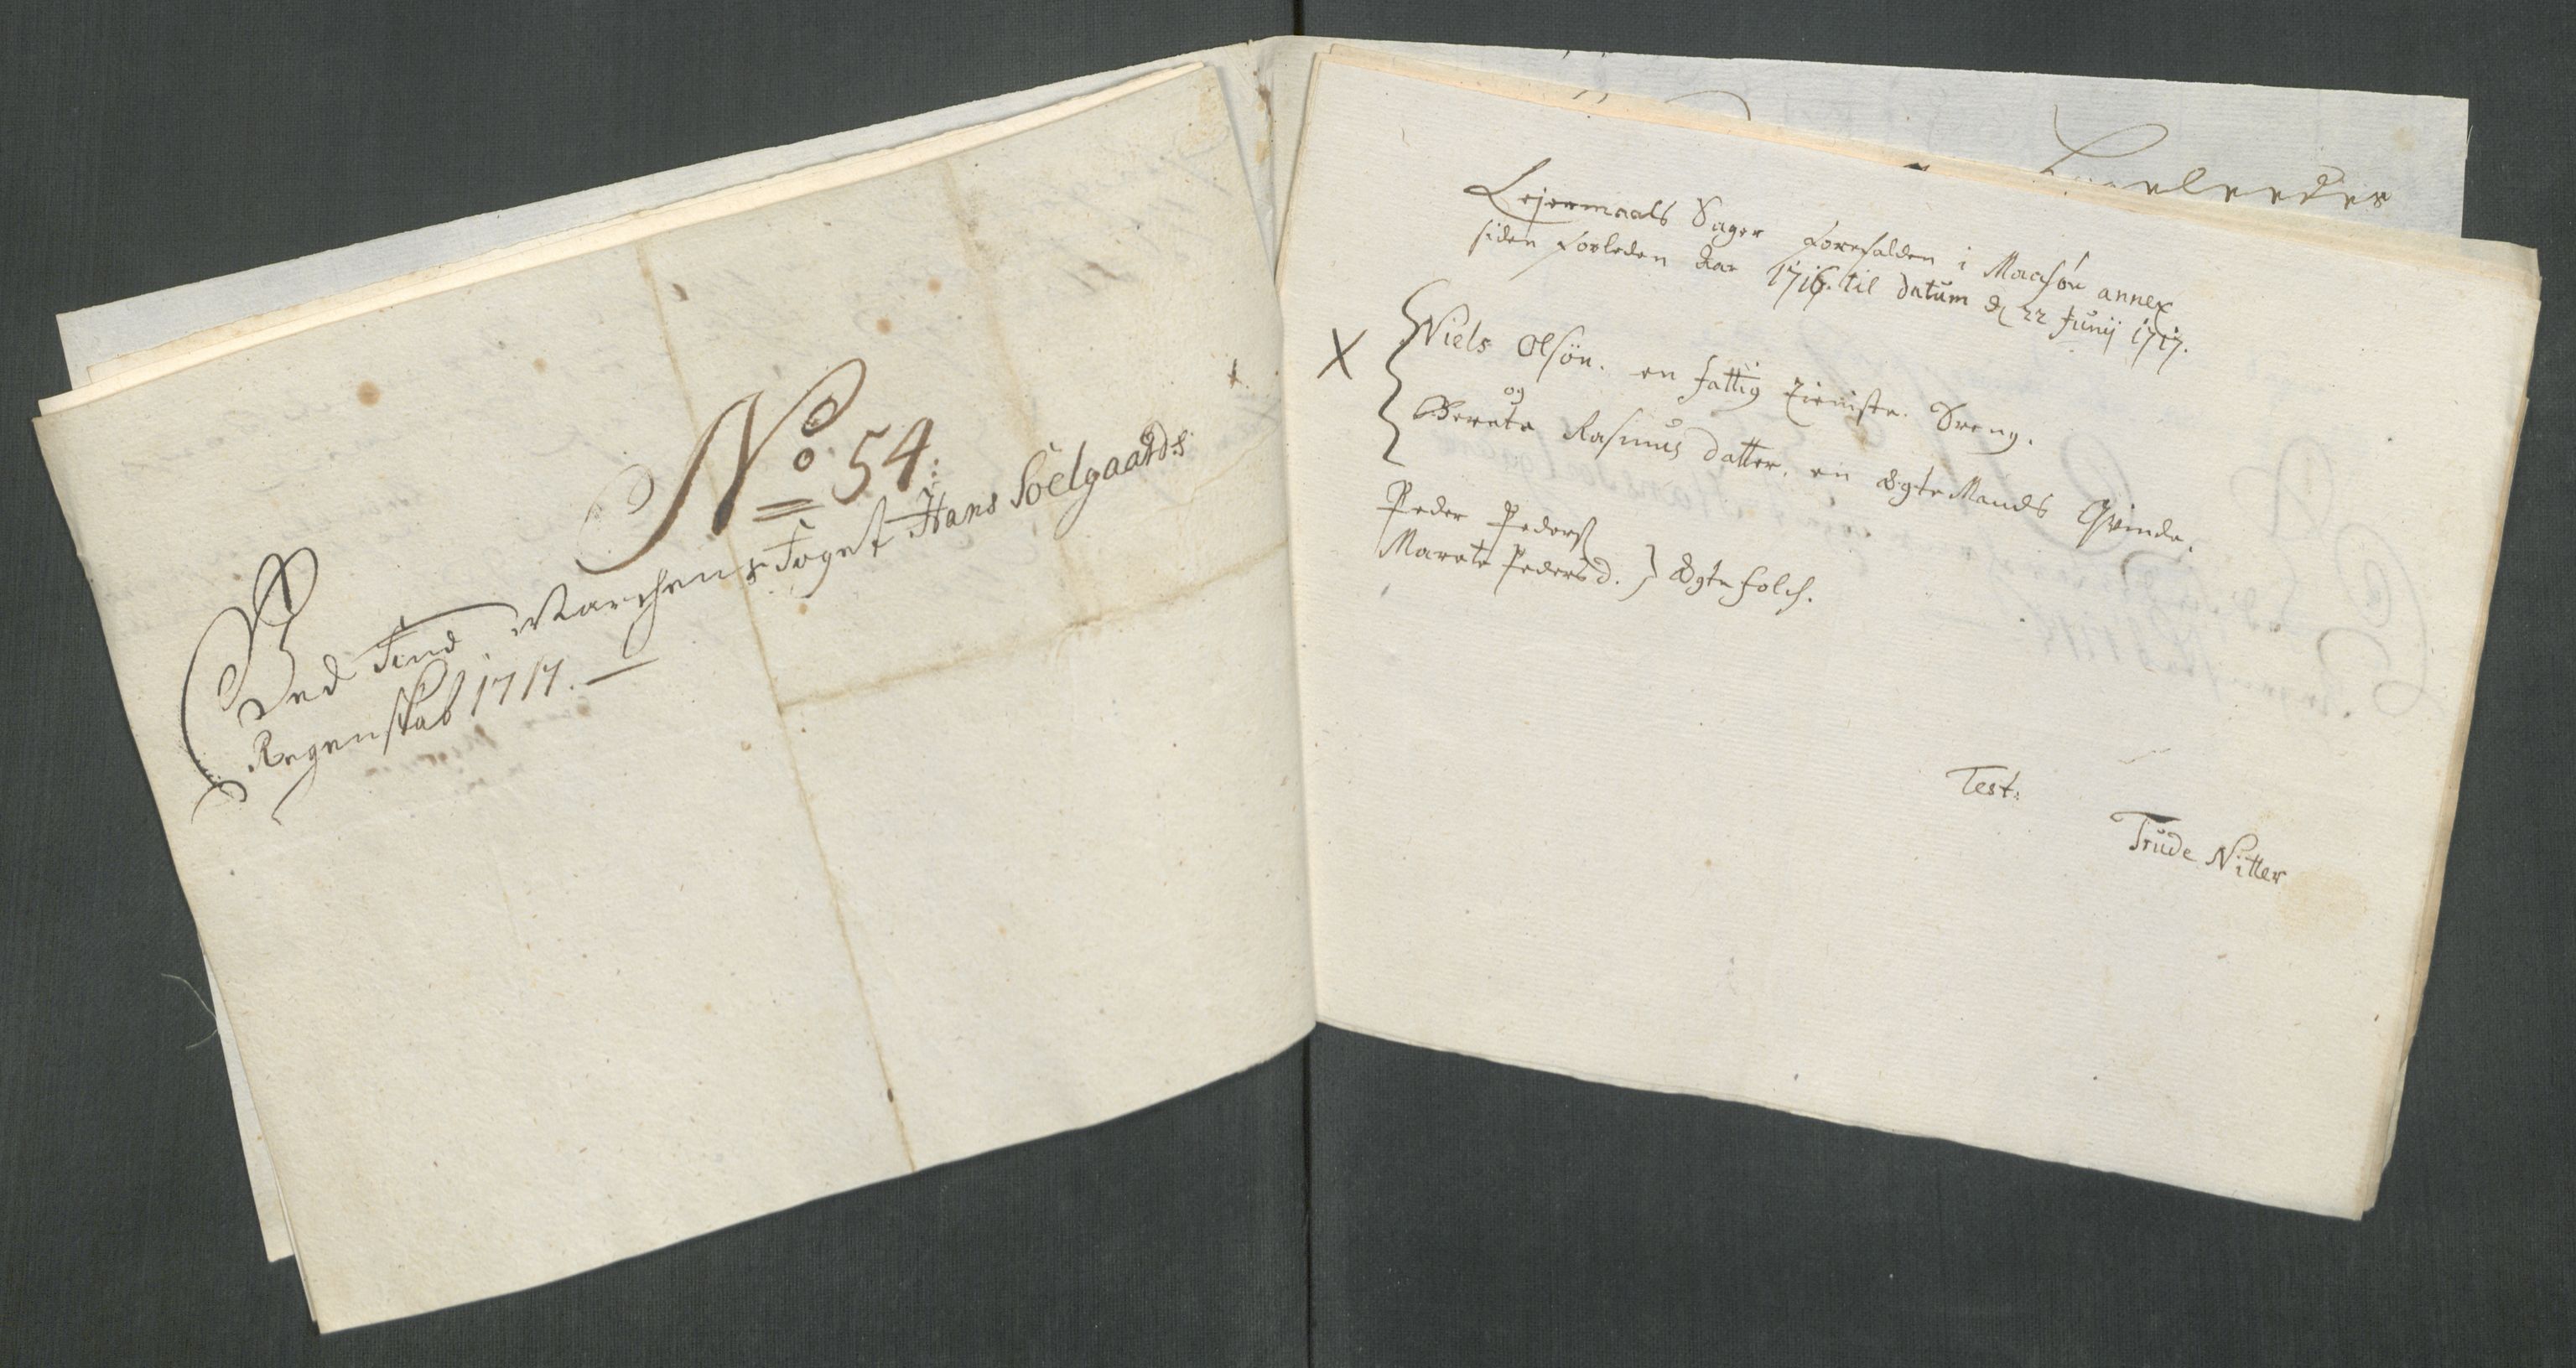 No. 54.
Ved Find Marchens Foget Hans Soelgaards
Regenskab 1717.
Lejermaals Sager forefalden i Maasøe annex
siden forleden Aar 1716. til datum d 22 Junij 1717.
X Niels Olsön. en fattig tieniste Dreng.
og
Berete Rasmus datter, en ægte Mands Qvinde.
Peder Pederss
Marete Pedersd. } Ægte folch.
Test:
Trude Nitter